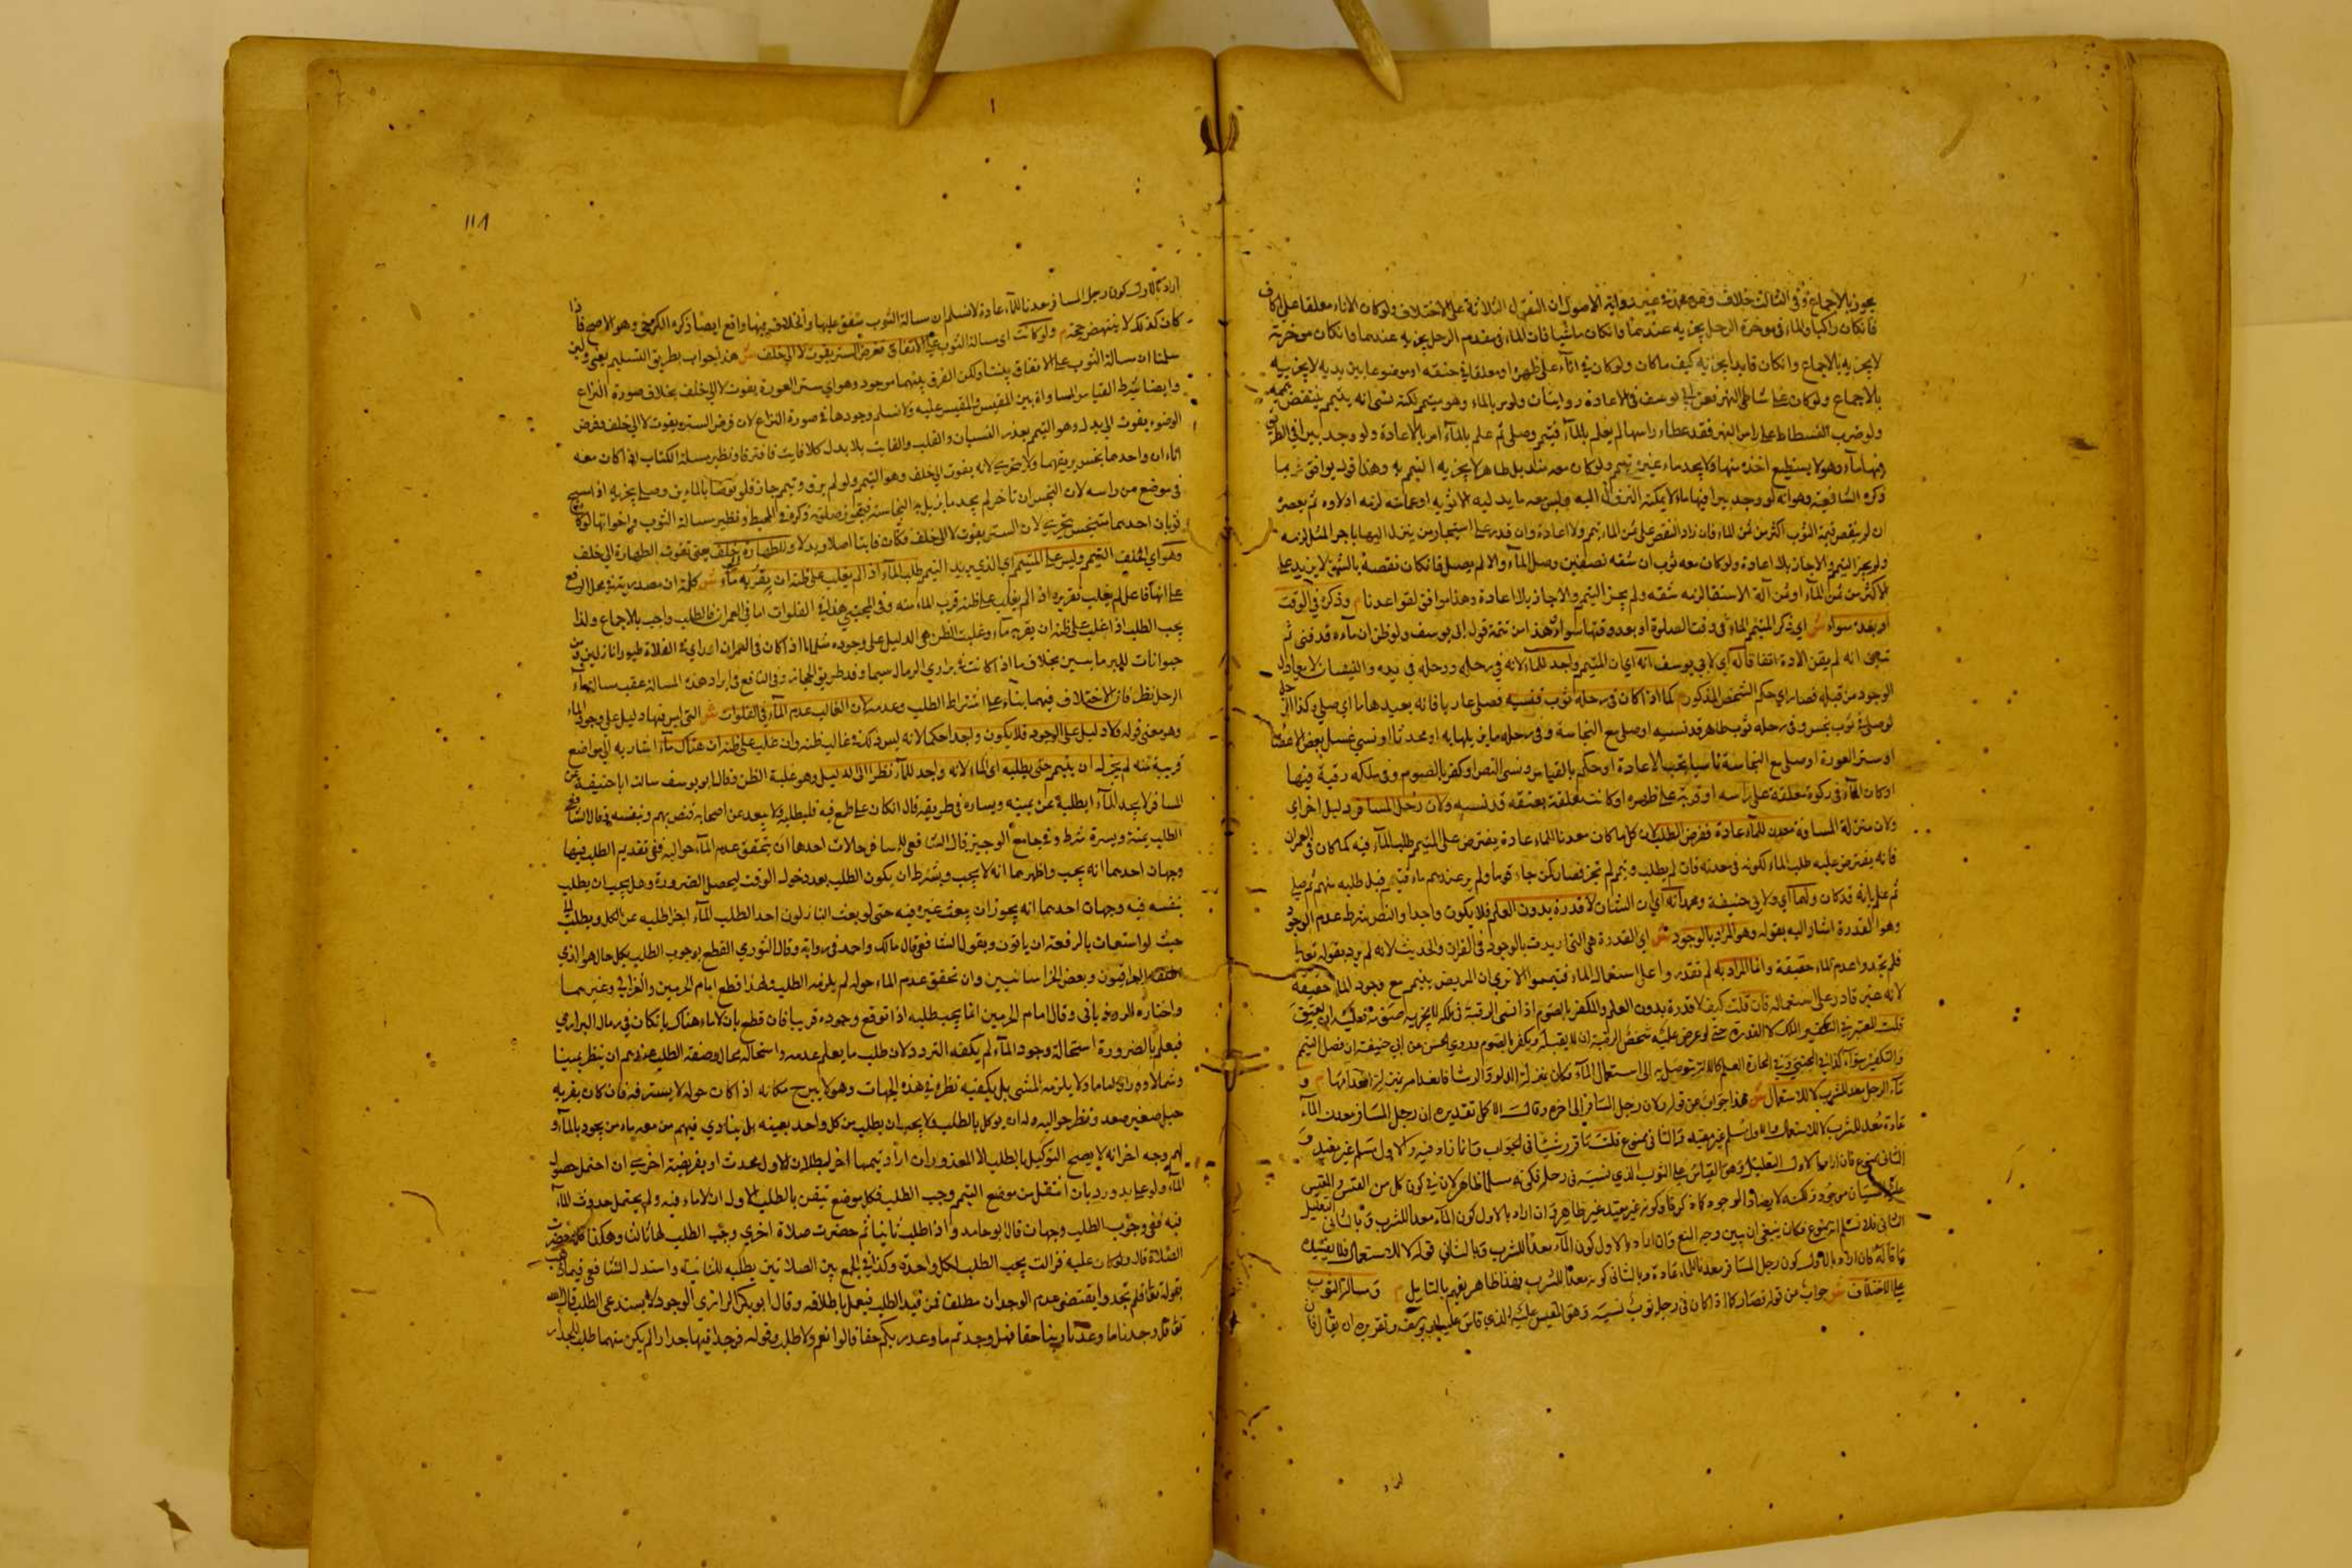 يجوز بالاجماع وفي الثالث خلاف وعن محمد في غير رواية الاصول ان الفصول الثلاثة على الاختلاف ولو كان الاناء معلقا على اكاف
فان كان راكبا والماء في موخرة الرحل يجزيه عندهما وان كان ماشيا فان الماء في مقدم الرحل يجزيه عندهما وان كان موخرته
لا يجزيه بالاجماع وان كان قايدا يجزيه كيف ما كان ولو كان في اناء على ظهره او معلقا في عنقه او موضوعا بين يديه لا يجزيه
بالاجماع ولو كان على شاطي النهر فعن ابي يوسف في الاعادة روايتان ولو مر بالماء وهو متيمم لكنه نسي انه يتيمم ينتقض تيممه
ولو ضرب الفسطاط على راس البئر فقد غطاء راسها لم يعلم بالماء فتيمم وصلى ثم علم بالماء امر بالاعادة ولو وجد بيرا في الطريق
وفيها ماء وهو لا يستطيع اخذه منها ولا يجد ماء غيره تيمم ولو كان معه منديل طاهر لا يجزيه التيمم به وهذا قول يوافق
ذكره الشافعية وهو انه لو وجد بيرا فيها ماء لا يمكنه النزول اليه وليس معه ما يدليه الا ثوبه او عمامته لزمه ادلاوه ثم يعصره
ان لم ينقص قيمة الثوب اكثر من ثمن الماء فان زاد النقص على ثمن الماء تيمم ولا اعادة وان قدر على استيجار من ينزل اليها باجر المثل لزمه
ولم يجز التيمم والا جاز بلا اعادة ولو كان معه ثوب ان شقه نصفين وصل الماء والا لم يصل فان كان نقصه بالشق لا يزيد على
الاكثر من ثمن الماء او ثمن آلة الاستقا لزمه شقه ولم يجز التيمم والا جاز بلا اعادة وهذا موافق لقواعدنا م وذكره في الوقت
او بعده سواء ش اي ذكر المتيمم الماء في وقت الصلوة او بعد وقتها سواء وهذا من تتمة قول ابي يوسف ولو ظن ان ماءه قد فني ثم
تبين انه لم يفن اعاده اتفاقا له اي لابي يوسف انه اي ان المتيمم واجد للماء لانه في رحله ورحله في يده والنسيان لا يعادل
الوجود من قبله فصار اي حكم الشخص المذكور كما اذا كان في رحله ثوب فنسيه فصلى عاريا فانه يعيدها ما اي صلى وكذا الرجل
لو صلى في ثوب نجس وفي رحله ثوب طاهر قد نسيه او صلى مع النجاسة وفي رحله ما يزيلها به او محدثا او نسي غسل بعض الاعضاء
او ستر العورة او صلى مع النجاسة ناسيا يجب الاعادة او حكم بالقياس ونسي النص او كفر بالصوم وفي ملكه رقبة فيها
او كان الماء في ركوة معلقة على راسه او قربة على ظهره او كانت معلقة بعنقه قد نسيه ولان رحل المسافر دليل اخر اي
ولان منزلة المسافة معدن للماء عادة ففرض الطلب لان كل ما كان معدنا للماء عادة يفترض على المتيمم طلب الماء فيه كما كان في العمران
فانه يفترض عليه طلب الماء لكونه في معدنه فان لم يطلب وتيمم لم يجز فصار كمن جاء قوما ولم ير عندهم ماء فتيمم قبل طلبه منهم ثم صلى
ثم علم بانه قد كان ولهما اي ولابي حنيفة ومحمد انه اي ان الشان لا قدرة بدون العلم فلا يكون واجدا والنص شرط عدم الوجود
وهو القدرة اشار اليه بقوله وهو المراد بالوجود ش اي القدرة هي التي اريدت بالوجود في القران والحديث لانه لم يرد بقوله تعالى
فلم تجدوا عدم الماء حقيقة وانما المراد به لم تقدروا على استعمال الماء فتيمموا الا ترى ان المريض يتيمم مع وجود الماء حقيقة
لانه غير قادر على استعماله فان قلت كيف لا قدرة بدون العلم والمكفر بالصوم اذا نسي الرقبة في ملكه لا يجزيه
قلت المعتبر في التكفير الملك لا القدرة حتى لو عرض عليه شخص الرقبة له ان لا يقبله ويكفر بالصوم وروى الحسن عن ابي حنيفة ان فصل التيمم
والتكفير سواء كذا في المجتبى العلم كالآلة يتوصل به الى استعمال الماء فكان بمنزلة الدلو والرشا م و
ماء الرحل معد للشرب لا للاستعمال ش هذا جواب عن قوله ولان رحل المسافر الى اخره وقال الاكمل تقديره ان رحل المسافر معدن الماء
عادة معد للشرب لا للاستعمال والاول مسلم غير مفيد والثاني ممنوع قلت
الثاني ممنوع فان اراد بالاول التعليل وهو القياس على الثوب الذي نسيه في رحله
الثاني فلا نسلم انه ممنوع فكان ينبغي ان يبين وجه المنع وان اراد بالاول كون الماء معدا للشرب وبالثاني قوله لا للاستعمال فلا يفيده
ما قاله فان اراد بالاول كون رحل المسافر معدنا للماء عادة وبالثاني كونه معدا للشرب فهذا ظاهر يفهم بالتامل م ومسالة الثوب
على الاختلاف ش جواب عن قوله فصار كما اذا كان في رحله ثوب نسيه وهو المقيس عليه الذي قاس عليه ابو يوسف وتقريره ان يقال فان
اراد
١١٨
اراد بالاول كون رحل المسافر معدنا للماء عادة لا نسلم ان مسالة الثوب متفق عليها والخلاف فيها واقع ايضا ذكره الكرخي وهو الاصح فاذا
كان كذلك لا ينتهض حجة م ولو كانت اي مسالة الثوب على الاتفاق ففرض الستر يفوت لا الى خلف ش هذا جواب بطريق التسليم يعني ولين
سلمنا ان مسالة الثوب على الاتفاق بيننا ولكن الفرق بينهما موجود وهو اي ستر العورة يفوت لا الى خلف بخلاف صورة النزاع
وايضا شرط القياس المساواة بين المقيس والمقيس عليه ولا نسلم وجودها في صورة النزاع لان فرض الستر يفوت لا الى خلف وفرض
الوضوء يفوت الى بدل وهو التيمم بعذر النسيان والفايت بلا بدل كلا فايت فافترقا ونظير مسالة الكتاب اذا كان معه
اناءان واحدهما نجس يريقهما ولا يتحرى لانه يفوت الى خلف وهو التيمم ولو لم يرق وتيمم جاز فلو توضا بالماءين وصلى يجزيه اذا مسح
في موضع من راسه لان النجس ان تاخر لم يجد ما يزيل به النجاسة فتجوز صلوته ذكره في المحيط ونظير مسالة الثوب واخواتها لو كان
ثوبان احدهما نجس يتحرى لان الستر يفوت لا الى خلف فكان فايتا اصلا وبدلا والطهارة خلف يعني تفوت الطهارة الى خلف
وهو اي الخلف التيمم وليس على المتيمم اي الذي يريد التيمم طلب الماء اذا لم يغلب على ظنه ان بقربه ماء ش كلمة ان مصدرية في محل الرفع
على انها فاعل لم يغلب تقريره اذا لم يغلب على ظنه قرب الماء منه وفي المجتبى هذا في الفلوات اما في العمران فالطلب واجب بالاجماع ولذا
يجب الطلب اذا غلب على ظنه ان بقربه ماء وغلبة الظن هي الدليل على وجوده مثل ما اذا كان في العمران او راى في الفلاة طيورا نازلين ومن
حيوانات للبر ما يسير بخلاف ما اذا كانت في براري الرمال سيما وقد طريق الحجاز وفي النافع في ايراد هذه المسالة عقب مسالة ماء
الرحل نظر فان الاختلاف فيهما بناء على اشتراط الطلب وعدمه لان الغالب عدم الماء في الفلوات ش التي ليس فيها دليل على وجود الماء
وهو معنى قوله ولا دليل على الوجود فلا يكون واجدا حكما لانه ليس ذلك في غالب ظنه وان غلب على ظنه ان هناك ماء اشار به الى مواضع
قريبة منه لم يجز له ان يتيمم حتى يطلبه اي الماء لانه واجد للماء نظرا الى الدليل وهو غلبة الظن وقال ابو يوسف سالت ابا حنيفة عن
المسافر لا يجد الماء ايطلبه عن يمينه ويساره في طريقه قال ان كان على طمع فيه فليطلبه ولا يبعد عن اصحابه فيضر بهم وبنفسه وقال الشافعي
الطلب يمنة ويسرة شرط وفي جامع الوجيز قال الشافعي للمسافر حالات احدها ان يتحقق عدم الماء حواليه ففي تقديم الطلب فيها
وجهان احدهما انه يجب واظهرهما انه لا يجب ويشترط ان يكون الطلب بعد دخول الوقت ليحصل الضرورة وهل يجب ان يطلب
بنفسه فيه وجهان احدهما انه يجوز ان يبعث غيره فيه حتى لو بعث النازلون احدا لطلب الماء اجزا طلبه عن الكل ويطلب الى
حيث لو استغاث بالرفقة ان ياتون ويقول الشافعي قال مالك واحمد في رواية وقال النووي القطع بوجوب الطلب بكل حال هو الذي
حققه العراقيون وبعض الخراسانيين وان تحقق عدم الماء حوله لم يلزمه الطلب ولهذا قطع امام الحرمين والغزالي وغيرهما
واختاره الروياني وقال امام الحرمين انما يجب طلبه اذا توقع وجوده قريبا فان قطع بان لا ماء هناك بان كان في رمال البراري
فيعلم بالضرورة استحالة وجود الماء لم يكلفه التردد لان طلب ما يعلم عدمه واستحالته محال وصفة الطلب عندهم ان ينظر يمينا
وشمالا ووراء واماما ولا يلزمه المشي بل يكفيه نظره في هذه الجهات وهو لا يبرح مكانه اذا كان حوله لا يستر فيه فان كان بقربه
جبل صغير صعد ونظر حواليه وله ان يوكل بالطلب ولا يجب ان يطلب من كل واحد بعينه بل ينادي فيهم من معه ماء من يجود بالماء و
لهم وجه اخر انه لا يصح التوكيل بالطلب الا المعذور ان اراد تيمما اخر لبطلان الاول بحدث او بفريضة اخرى ان احتمل حصول
الماء ولو على بدور ديان انتقل من موضع التيمم وجب الطلب فكل موضع تيقن بالطلب الاول ان لا ماء فيه ولم يحتمل حدوث الماء
فيه ففي وجوب الطلب وجهان قال ابو حامد واذا طلب ثانيا ثم حضرت صلاة اخرى وجب الطلب لها ثالثا وهكذا كلما حضرت
الصلاة قال ولو كان عليه فوائت يجب الطلب لكل واحدة وكذا في الجمع بين الصلاتين يطلبه للثانية واستدل الشافعي فيما
بقوله تعالى فلم تجدوا يقتضي عدم الوجدان مطلقا عن قيد الطلب فيعمل باطلاقه وقال ابو بكر الرازي الوجود لا يستدعي الطلب قال الله
تعالى وجدنا ما وعدنا ربنا حقا فهل وجدتم ما وعد ربكم حقا قالوا نعم ولا طلب وقوله فوجدا فيها جدارا لم يكن منهما طلب للجدار